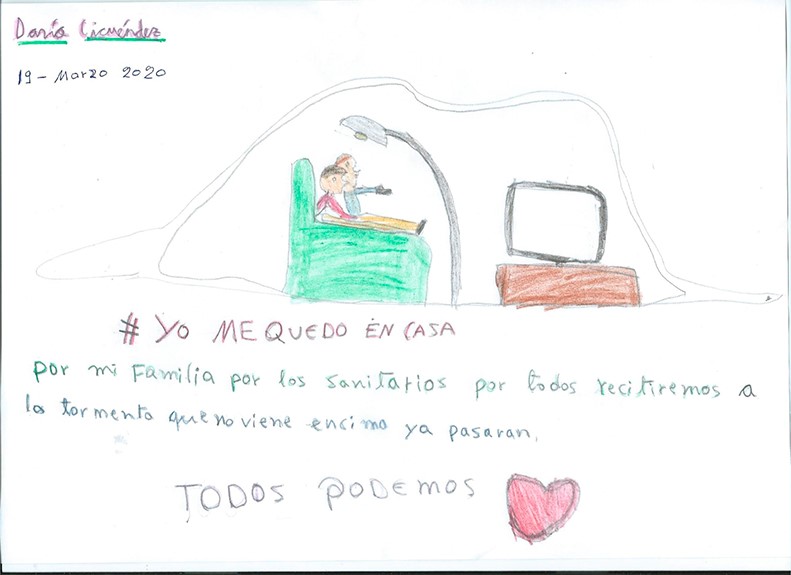 Darío Cicuéndez
19 - Marzo 2020
# YO ME QUEDO EN CASA
por mi Familia por los sanitarios por todos recitiremos a
la tormenta que no viene encima ya pasaran,
TODOS PODEMOS